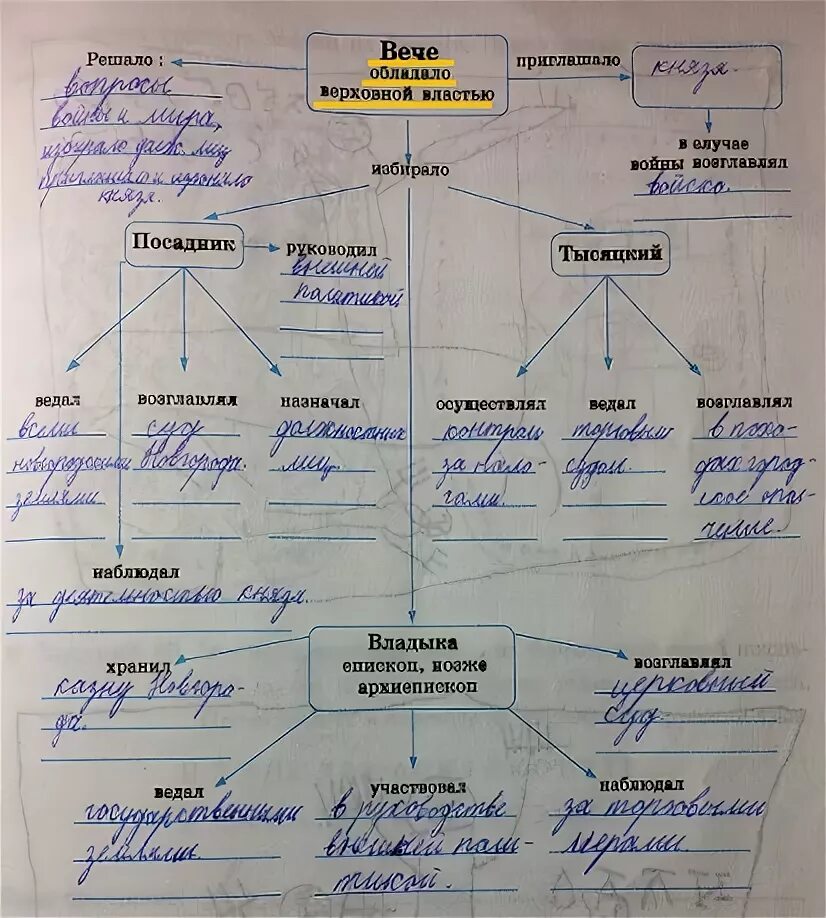 Вече
обладало
верховной властью
Решало :
вопросы
войны и мира,
избирало долж. лиц
приглашало и изгоняло
князя.
приглашало
князя.
в случае
войны возглавлял
войска.
избирало
Посадник
руководил
внешней
политикой
Тысяцкий
ведал
всеми
новгородскими
землями
возглавлял
суд
Новгорода.
назначал
должностных
лиц.
осуществлял
контроль
за нало-
гами.
ведал
торговым
судом.
возглавлял
в похо-
дах город-
ское опол-
чение.
наблюдал
за деятельностью князя.
Владыка
епископ, позже
архиепископ
хранил
казну Новгоро-
да.
возглавлял
церковный
суд
ведал
государственными
землями.
участвовал
в руководстве
внешней поли-
тикой.
наблюдал
за торговыми
мерами.